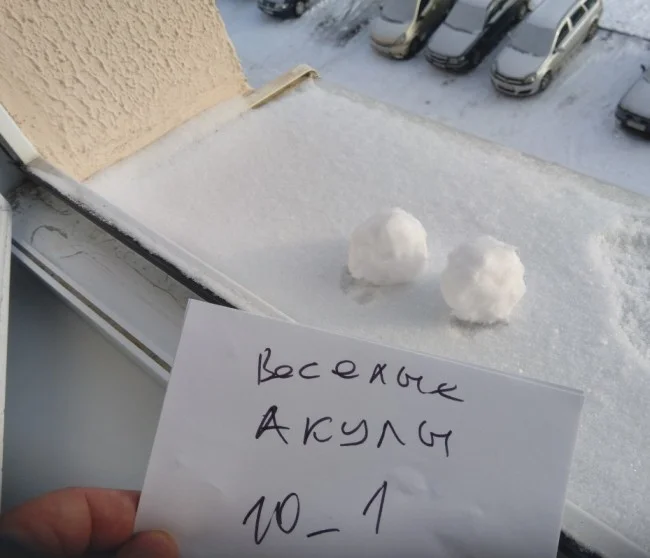 Веселые
Акулы
10_1